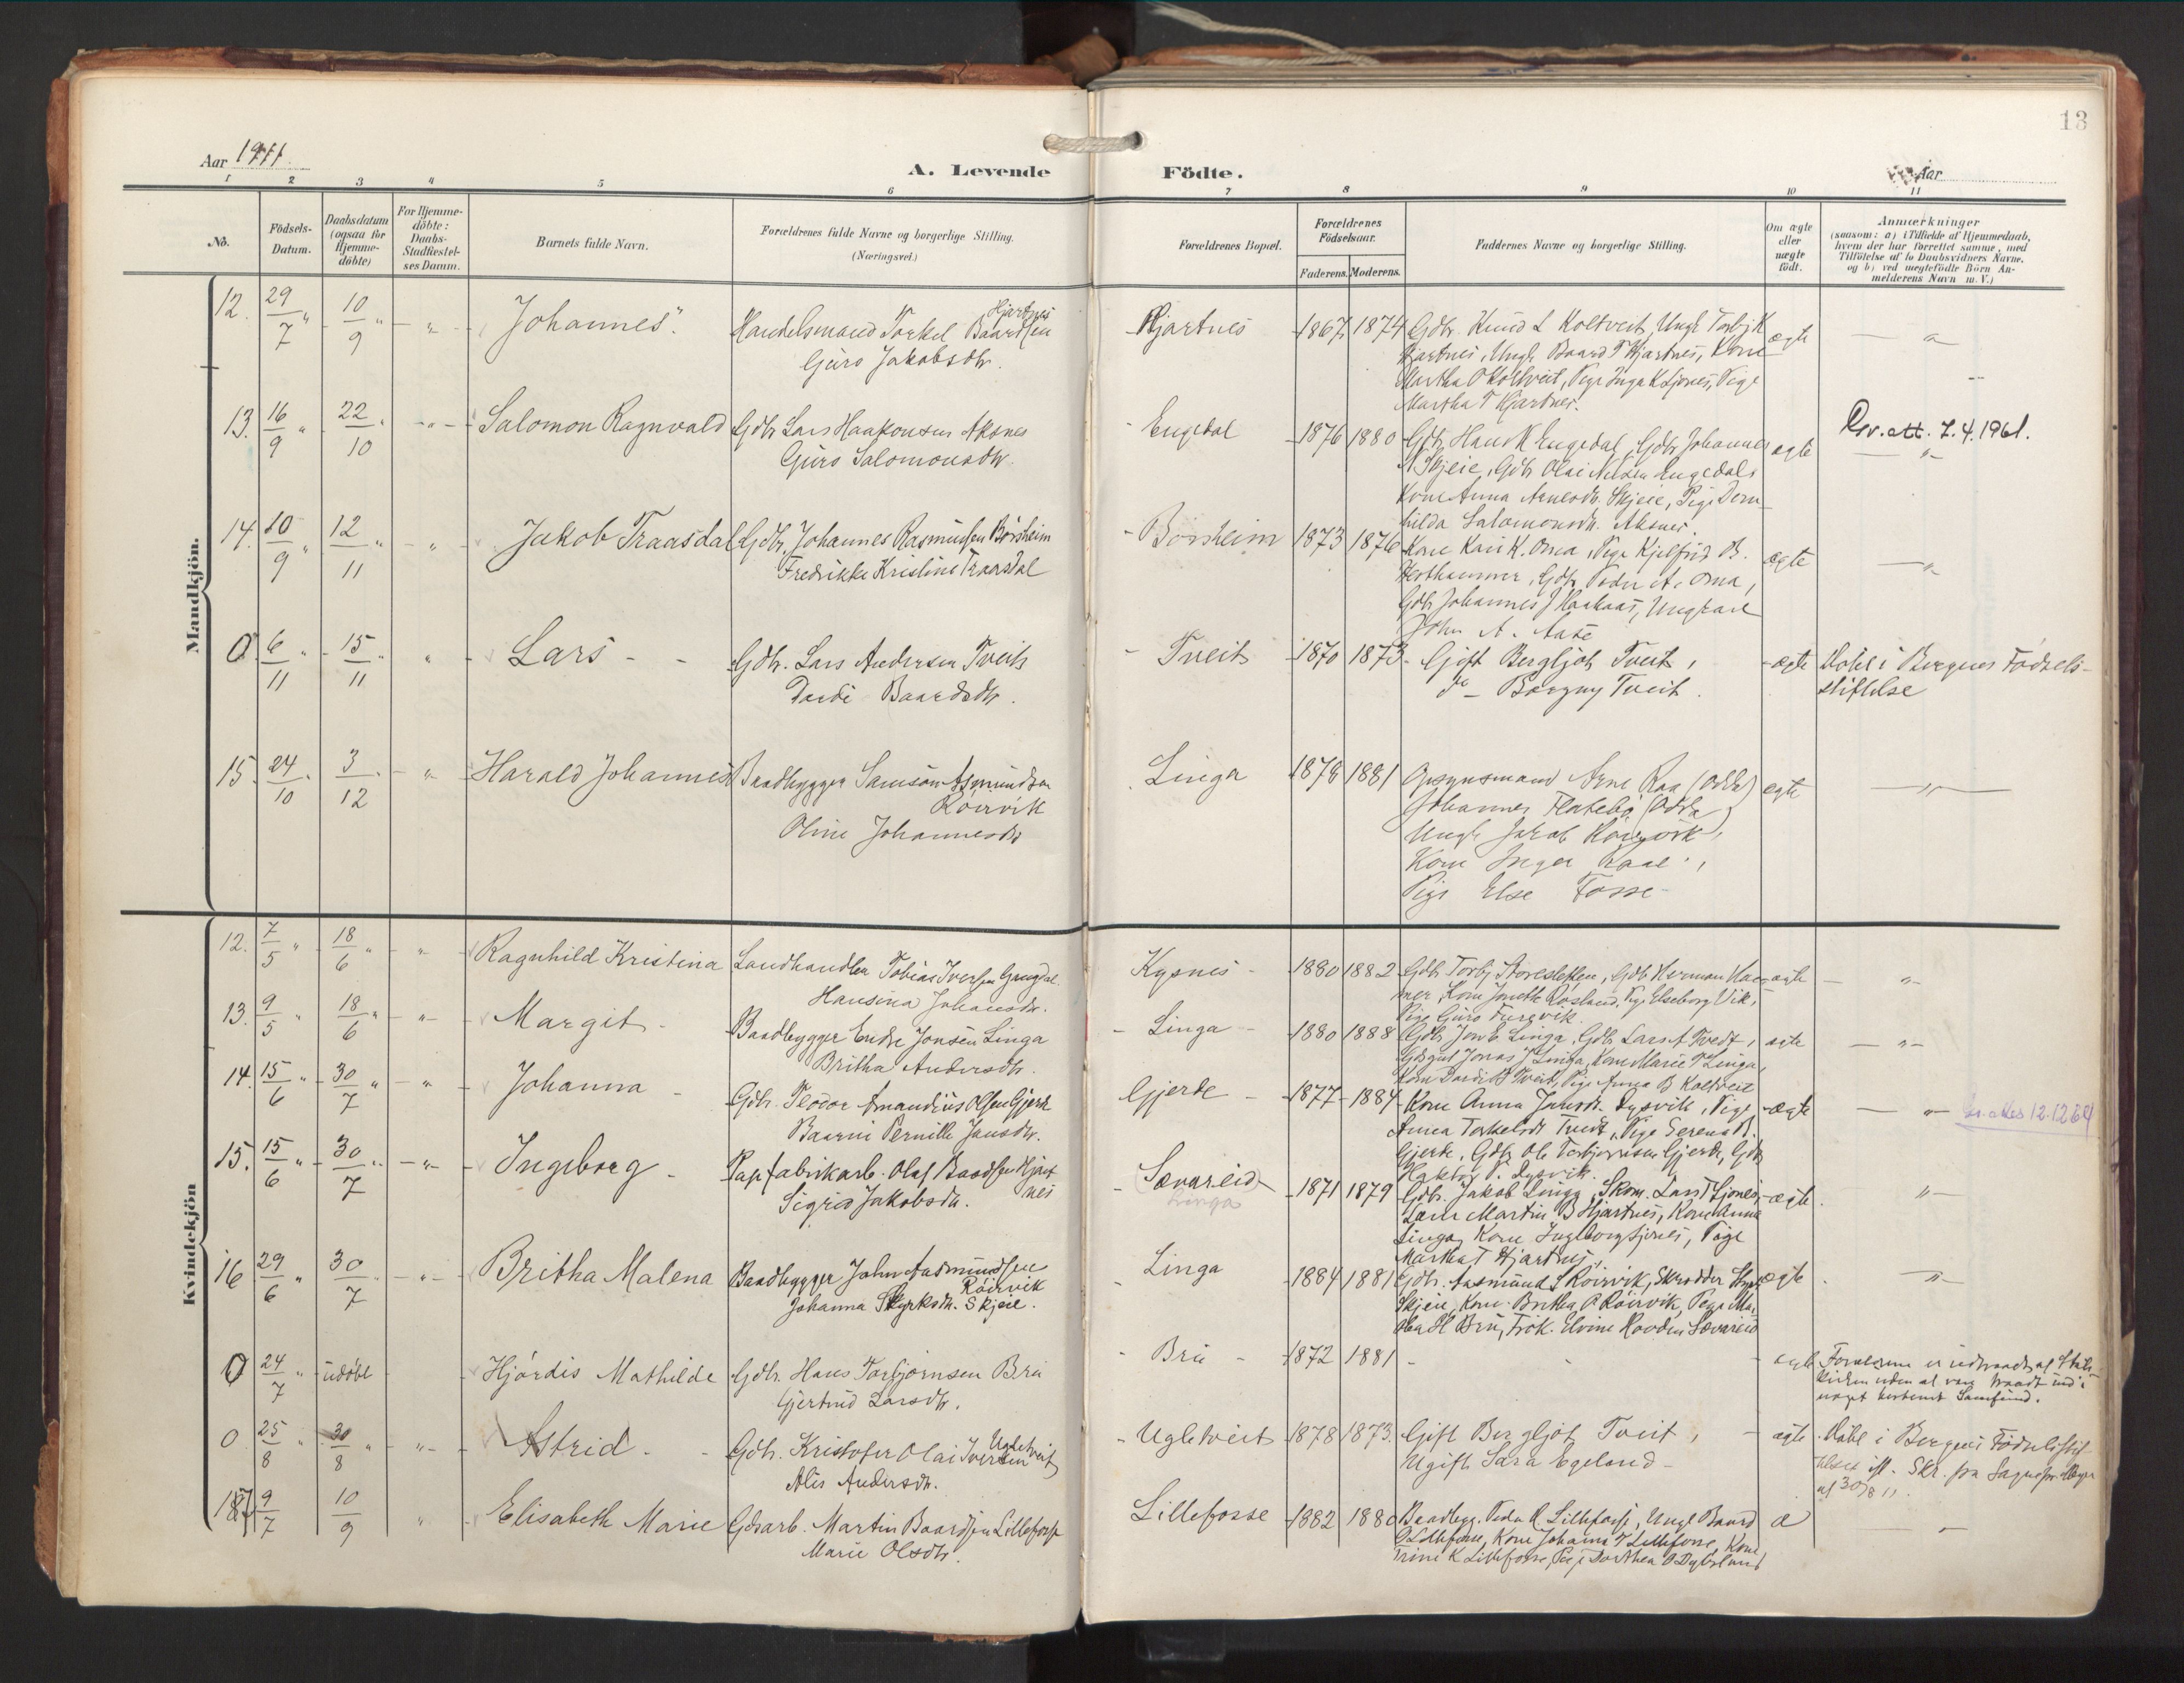 13
Aar 1911.
A. Levende Födte.
Aar
1 2 3 4 5 6 7 8 9 10 11
No.
Födsels-Datum.
Daabsdatum (ogsaa for Hjemme-döbte)
For Hjemme-döbte: Daabs-Stadfæstel-ses Datum.
Barnets fulde Navn.
Forældrenes fulde Navne og borgerlige Stilling. (Næringsvei.)
Forældrenes Bopæl.
Forældrenes Födselsaar.
Faderens. Moderens.
Faddernes Navne og borgerlige Stilling.
Om ægte eller uægte födt.
Anmærkninger
(saasom: a) i Tilfælde af Hjemmedaab, hvem der har forrettet samme, med Tilföielse af to Daabsvidners Navne, og b) ved uægtefödte Börn An-melderens Navn m. V.)
Mandkjön.
12. 29/7 " 10/9 " - " - Johannes". Handelsmand Torkel Baardsen Hjartnes
Guro Jakobsdtr.
Hjartnes 1867 1874 Gdbr. Knud L Koltveit, Ungk Torbj K
Hjartnes, Ungk Baard T Hjartnes, Kone
Martha O Koltveit, Pige Inga K Ljones, Pige
Martha T Hjartnes.
ægte
13. 16/9 " 22/10 " - " - Salomon Ragnvald Gdbr Lars Haakonsen Aksnes
Guro Salomonsdtr.
Engedal 1876 1880 Gdbr Hans K Engedal, Gdbr Johannes
A Skjeie, Gdbr Olai Nilsen Engedal,
Kone Anna Arnesdtr. Skjeie, Pige Dorm-
hilda Salomonsdtr. Aksnes.
ægte
Nr. att. 7.4.1961.
14. 10/9 " 12/11 " - " - Jakob Traasdal Gdbr. Johannes Rasmussen Börsheim
Fredrikke Kristine Traasdal
Börsheim 1873 1876 Kone Kari K. Oma, Pige Kjelfrid B.
Gdbr Peder A. Oma,
Gdbr Johannes J Haakaas, Ungkarl
John A. Aase
ægte
0. 6/11 " 15/11 " Lars - - Gdbr. Lars Andersen Tveit
Dordi Baardsdtr.
Tveit 1870 1873 Gift Bergljot Tveit,
do Borgny Tveit.
ægte Döbt i Bergens Födsels-
stiftelse
15. 24/10 " 3/12 " - " - Harald Johannes Baadbygger Samson Asmundsen
Röirvik
Oline Johannesdtr
Linga 1878 1881 Opsynsmand Arne Raa (Odda)
Johannes Flatebö (Odda)
Ungk Jakob Röirvik,
Kone Inger Raae,
Pige Else Fosse
ægte
Kvindekjön
12. 7/5 " 18/6 " - " - Ragnhild Kristina Landhandler Tobias Iversen Gangdal.
Hansina Johansdtr.
Kysnes 1880 1882 Gdbr Torbj Storesletten, Gdbr Herman Ham-
mer, Kone Jonette Rosland, Pige Elseborg Vik,
Pige Guro Furevik.
ægte
13. 9/5 " 18/6 " - " - Margit - Baadbygger Endre Jonsen Linga
Britha Andersdtr.
Linga 1880 1888 Gdbr Jon E Linga, Gdbr Lars A Tvedt,
Gdsgut Jonas J Linga, Kone Marie T Linga,
Kone Dordi B Tveit, Pige Anna B Koltveit
ægte
14. 15/6 " 30/7 " - " - Johanna - Gdbr. Teodor Amandius Olsen Gjerde
Baarni Pernille Jansdtr.
Gjerde 1877 1884 Kone Anna Jansdtr. Dysvik, Pige
Anna Torkelsdtr Tvedt, Pige Serena B.
Gjerde, Gdbr Ole Torbjörnsen Gjerde, Gdbr
P. Dysvik.
ægte
12.12.64
15. 15/6 " 30/7 " - " - Ingeborg - Papfabrikarb. Olaf Baardsen Hjart
nes
Sigrid Jakobsdtr.
Sævareid
Linga
1871 1879 Gdbr. Jakob Linga, Skom. Lars T Ljones,
Lærer Martin B Hjartnes, Kone Anna
Linga, Kone Ingeborg Ljones, Pige
Martha T Hjartnes.
ægte
16 29/6 " 30/7 " - " - Britha Malena Baadbygger John Aasmundsen
Röirvik
Johanna Skjeie.
Linga 1884 1881 Gdbr. Aasmund S Röirvik, Skrædder
Skjeie, Kone Britha A Röirvik, Pige Mar-
tha H Bru, Frök. Elvine Hovden Sævareid
ægte
0 24/7 " udöbt Hjördis Mathilde Gdbr. Hans Torbjörnsen Bru
Gjertrud Larsdtr.
Bru 1872 1881 - - ægte Forældrene er udtraadt af Stats-
kirken uden at være traadt ind i
noget bestemt Samfund.
0 25/8 " 30/8 " - " - Astrid - - Gdbr. Kristofer Olai Iversen Ugletveit
Alis Andersdtr.
Ugletveit 1878 1873. Gift Bergljot Tveit,
Ugift Sara Egeland
ægte Döbt i Bergens Födselsstif-
telse ifl. Skr. fra Sognepr. Meyer
af 30/8 11.
17 9/7 10/9 " Elisabeth Marie Gdsarb. Martin Baardsen Lillefosse
Marie Olsdtr.
Lillefosse 1882 1880 Baadbygg. Peder R Lillefosse, Ungk Baard
O Lillefosse, Kone Johanna T Lillefosse, Kone
Trini K Lillefosse, Pige Dorthea
æ